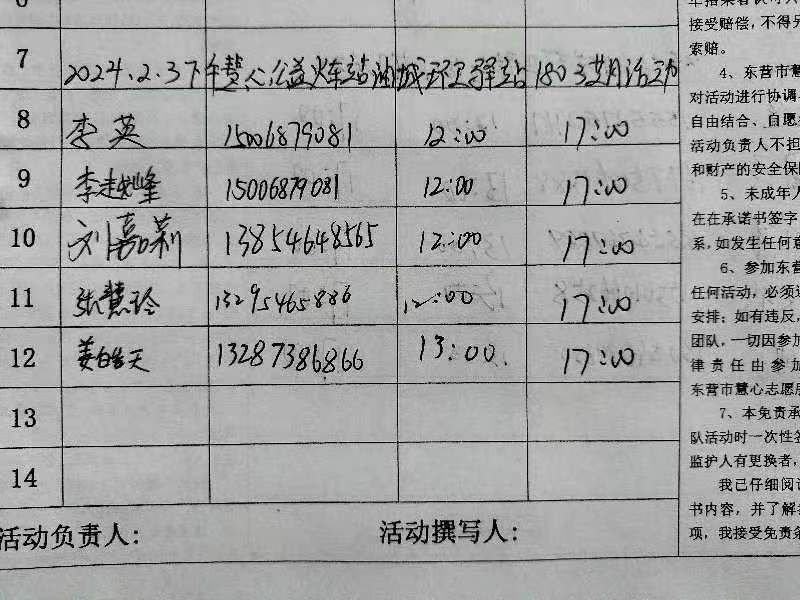 6
7 2024.2.3下午慧心公益火车站油城环卫驿站180
8 李英 15006879081 12:00 17:00
9 李越峰 15006879081 12:00 17:00
10 刘嘉莉 13854648565 12:00 17:00
11 张慧玲 13295465886 12:00 17:00
12 姜皓天 13287386866 13:00 17:00
13
14
活动负责人: 活动撰写人:
接受赔偿,不得另
索赔。
4、东营市慧
对活动进行协调
自由结合、自愿
活动负责人不担
和财产的安全保
5、未成年人
在在承诺书签字
系,如发生任何意
6、参加东营
任何活动,必须
安排;如有违反,
团队,一切因参加
律责任由参加
东营市慧心志愿
7、本免责承
队活动时一次性签
监护人有更换者,
我已仔细阅读
书内容,并了解
项,我接受免责条